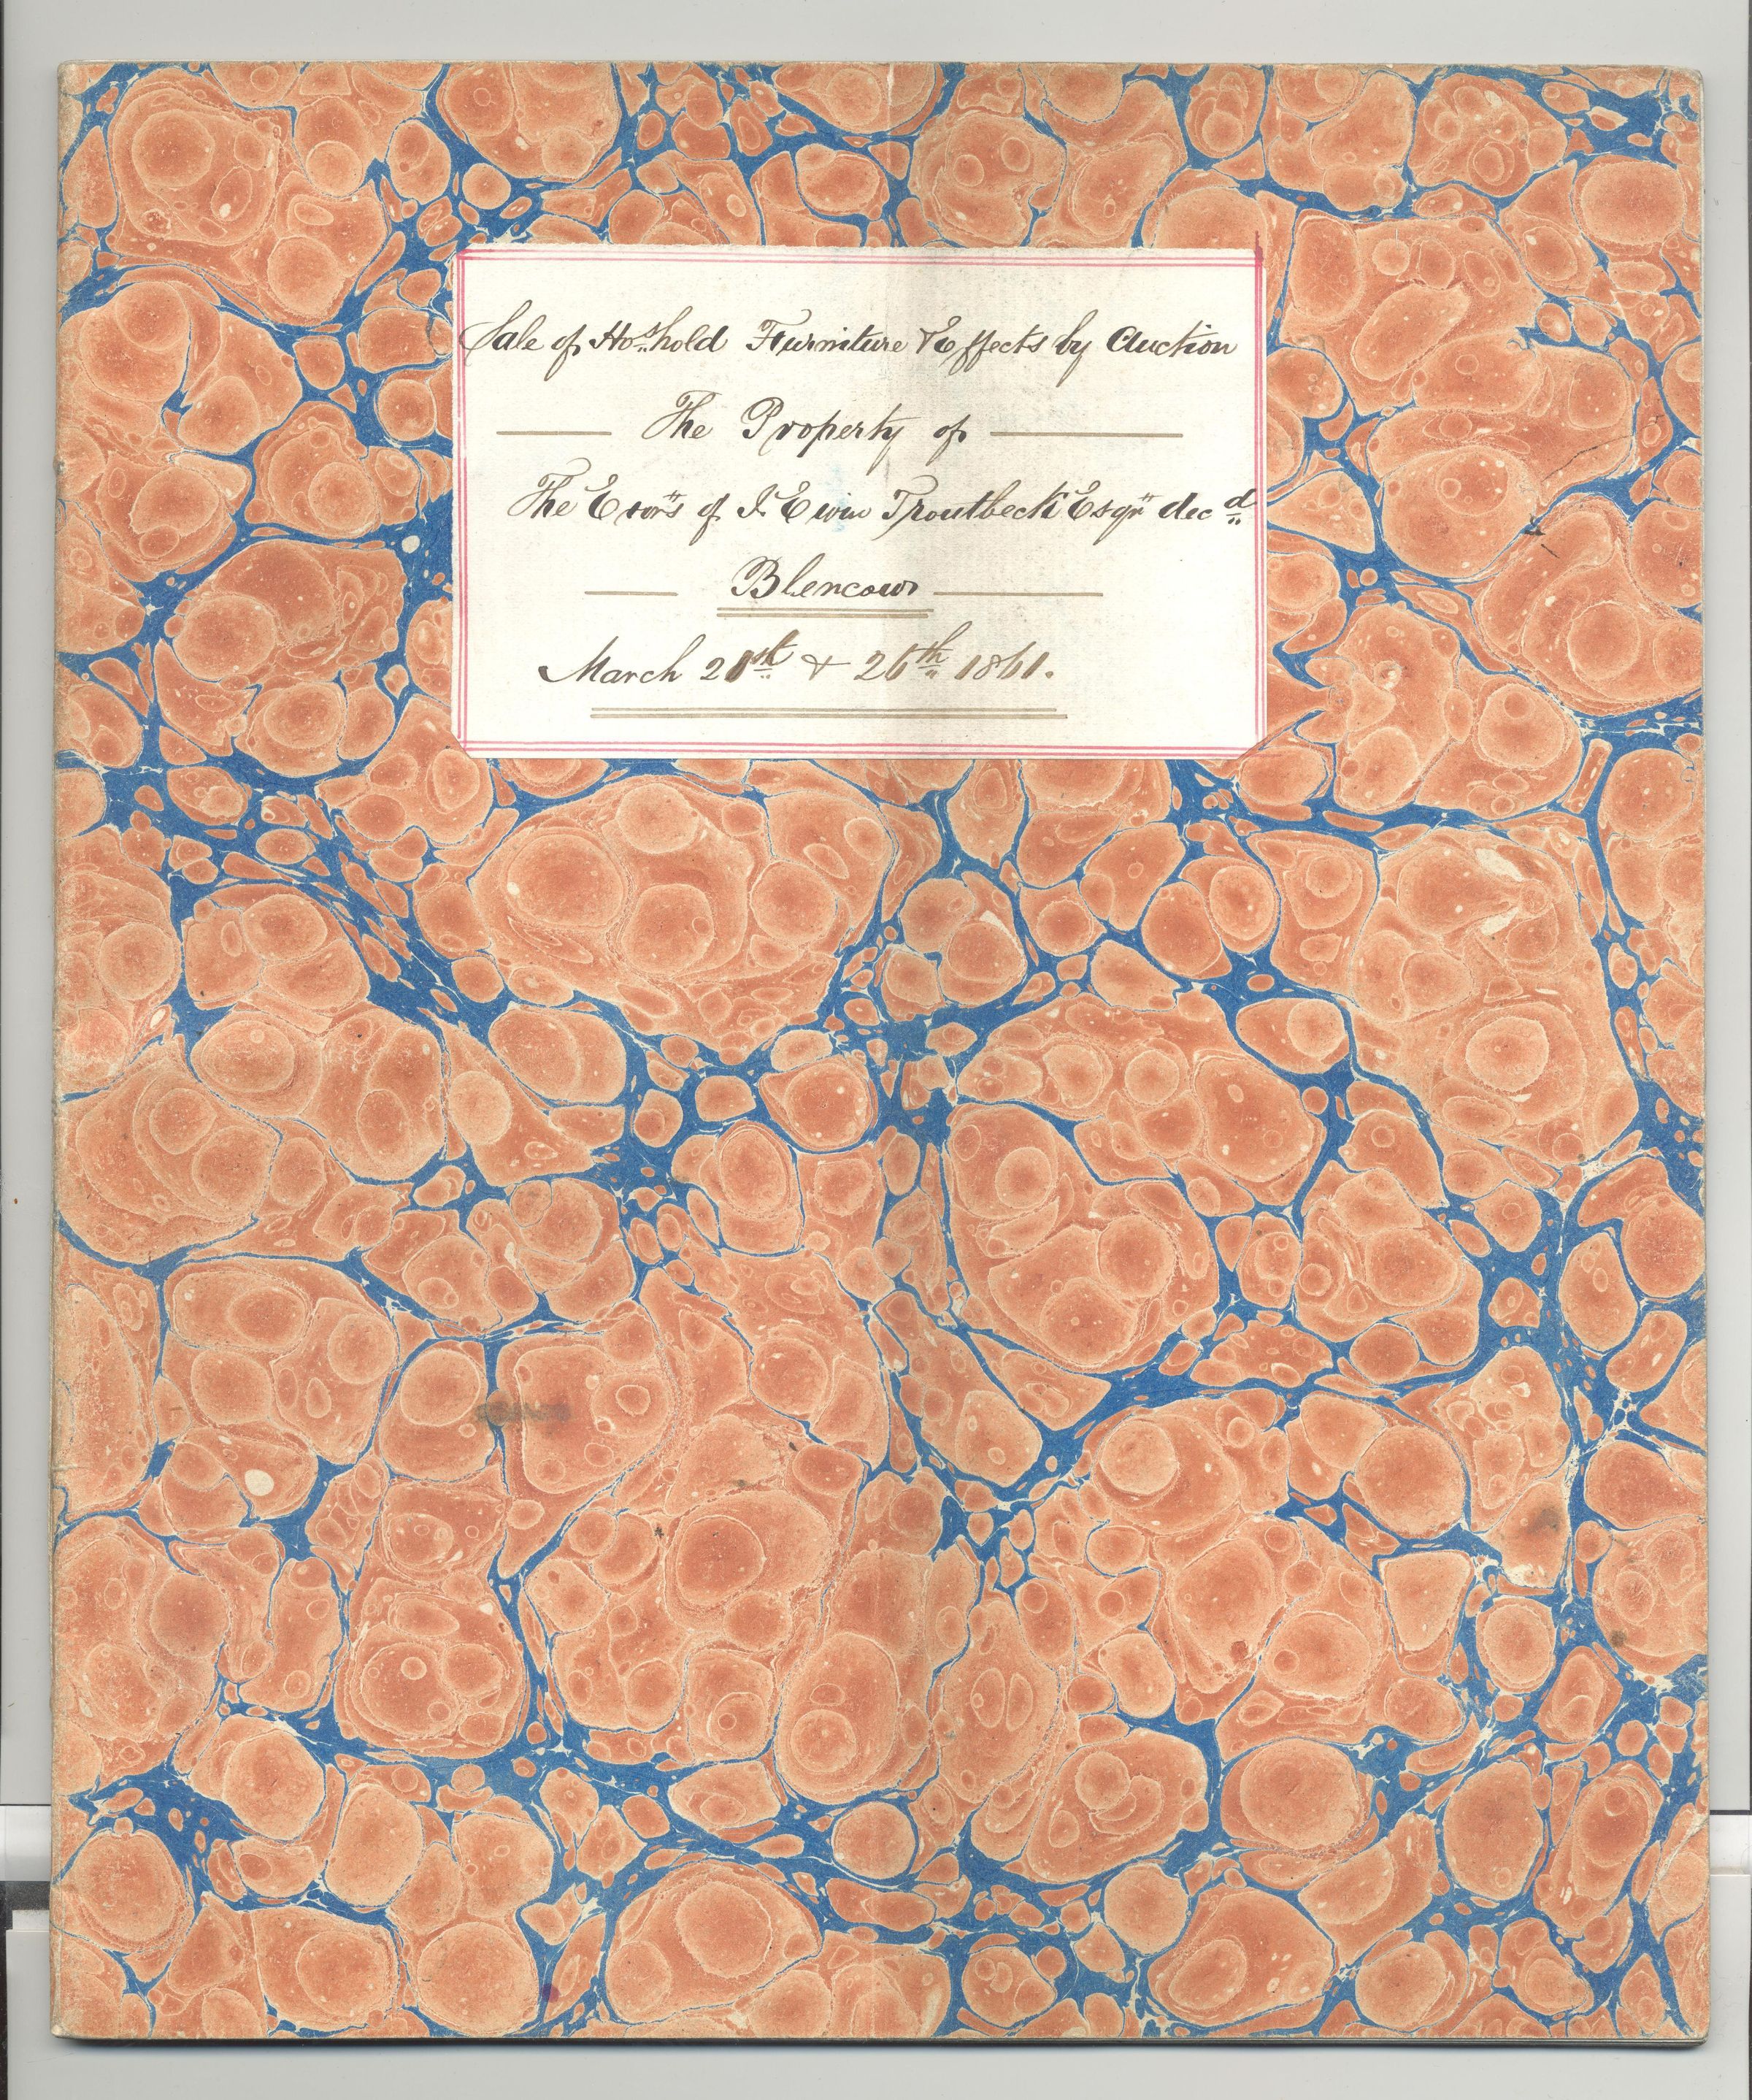 Sale of Hoshold Furniture & Effects by Auction
The Property of
The Exors of J. Erwin Troutbeck Esqr decd
Blencow
March 21st & 26th 1861.